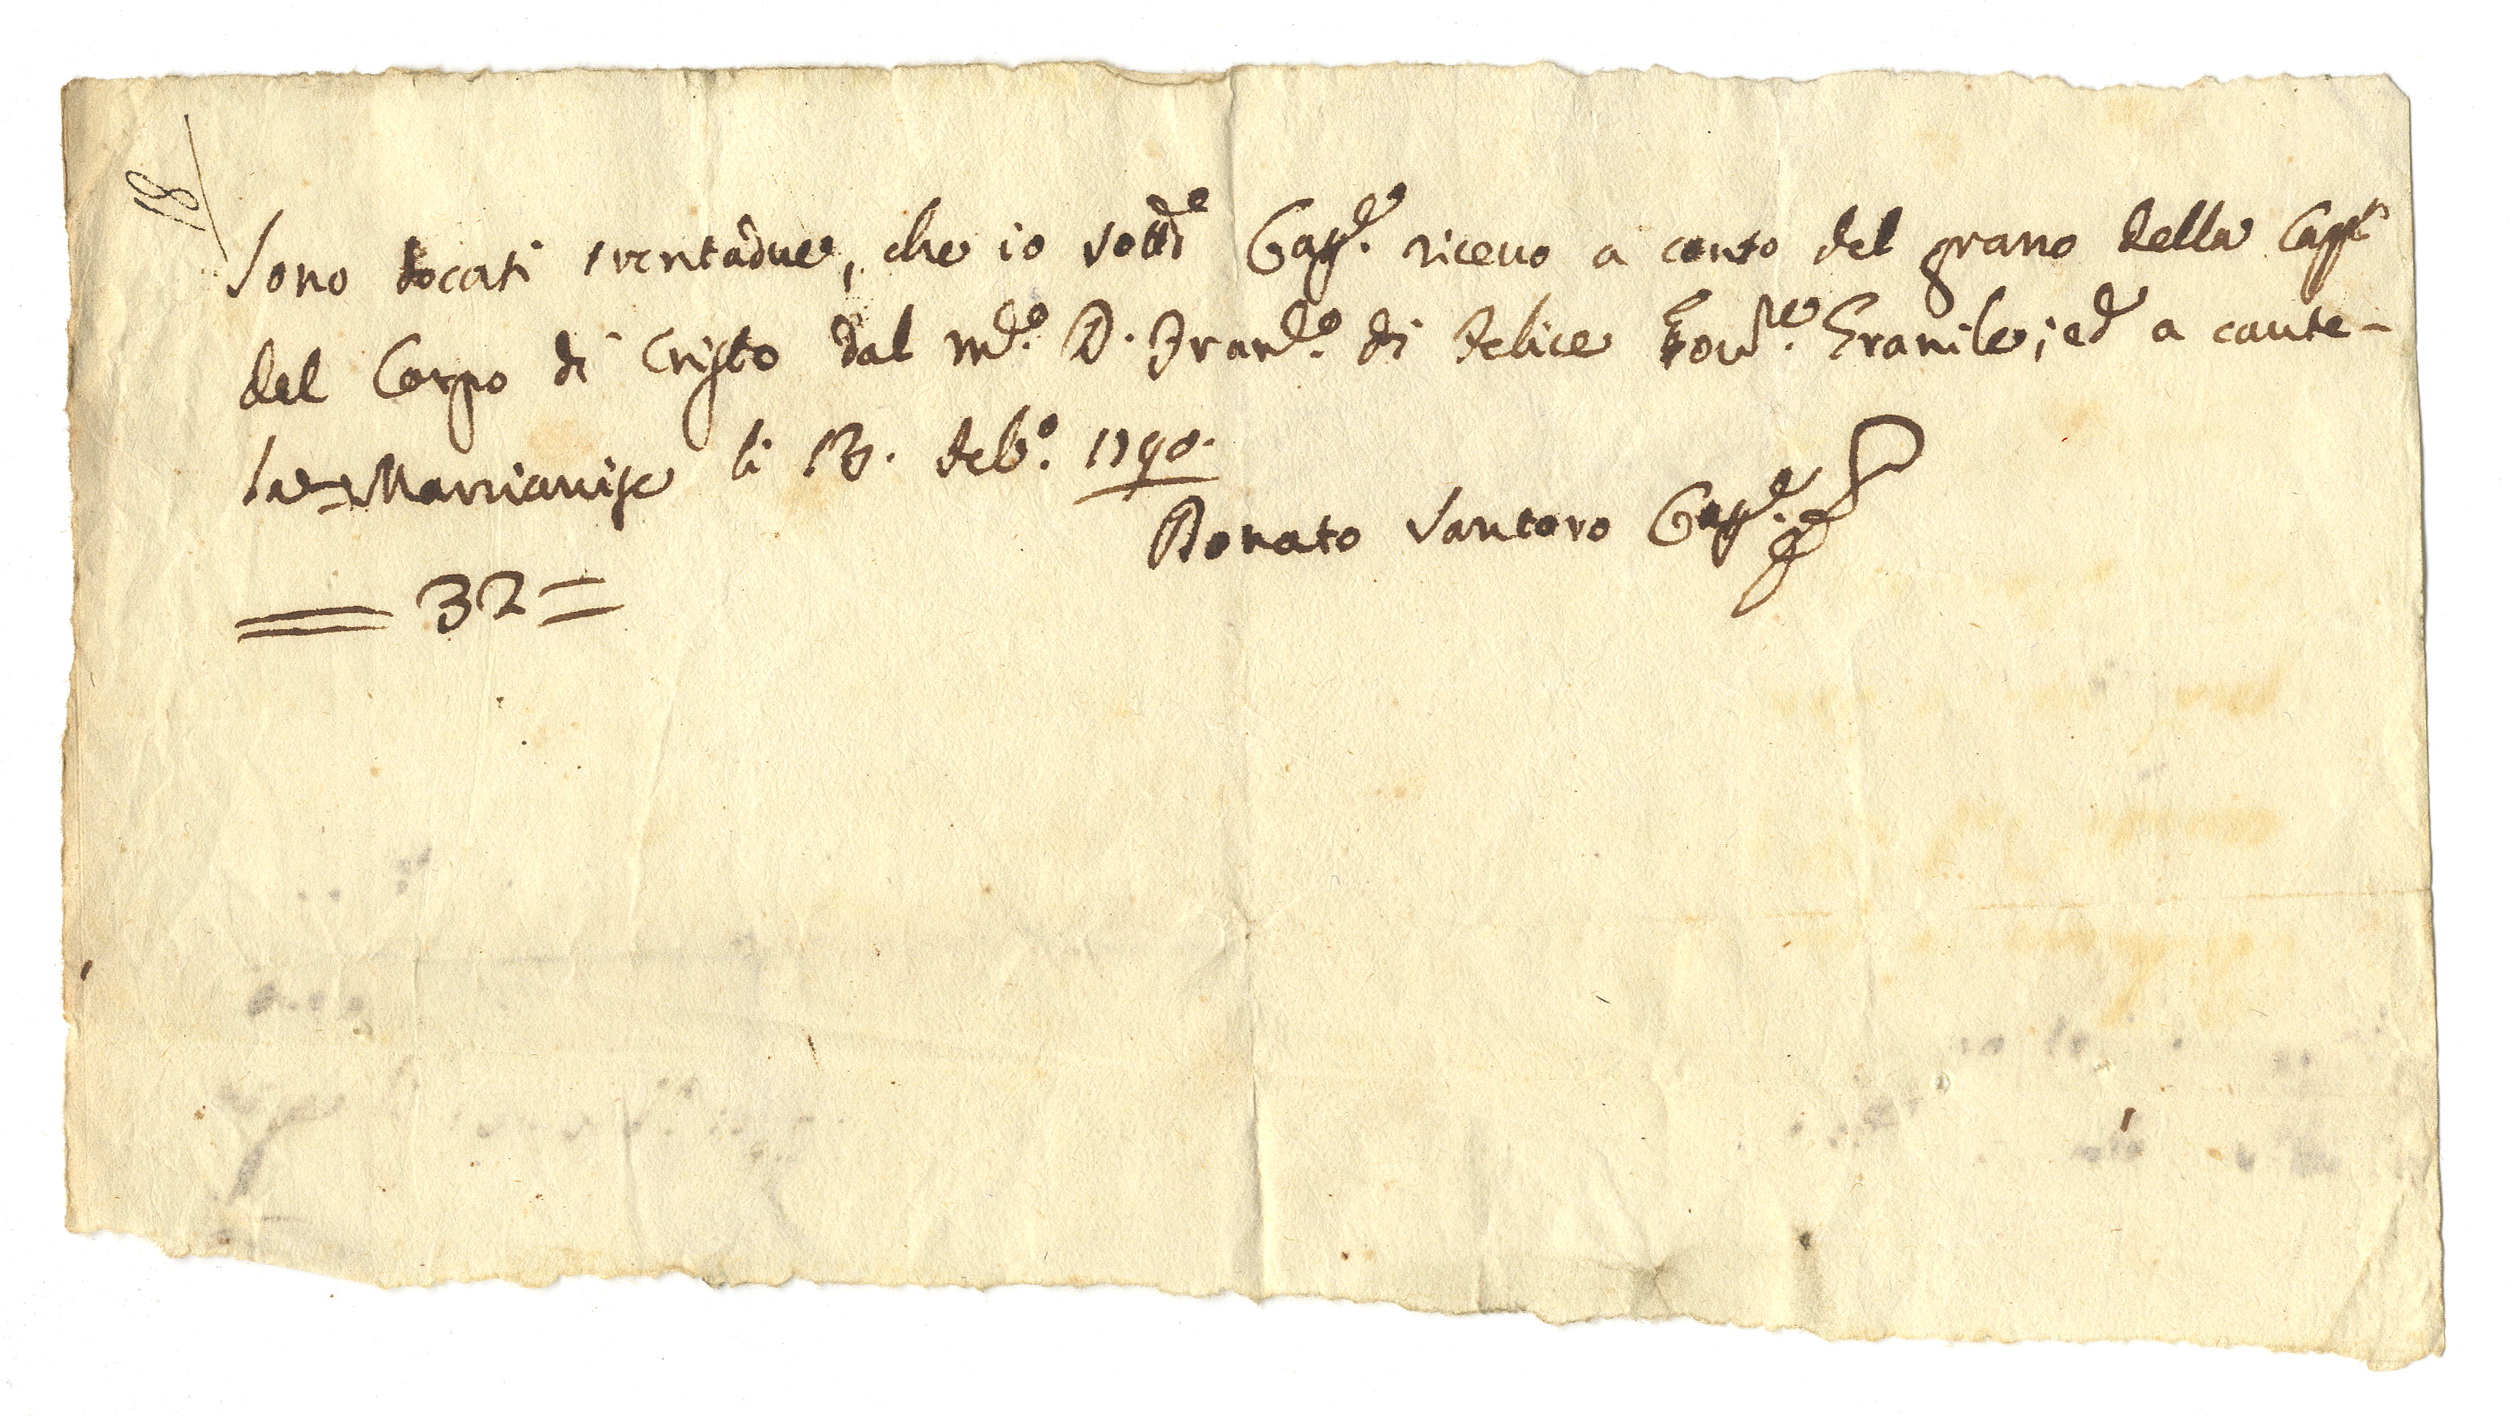 18
Sono docati trentadue, che io sott.e Cap.e ricevo a conto del grano della Capp.a
del Corpo di Cristo dal m.co D. Fran.co di Felice Gov.re Granile; ed a caute-
la = Marcianise li Feb.o 1790.
Donato Santoro Cap.e
= 32 =